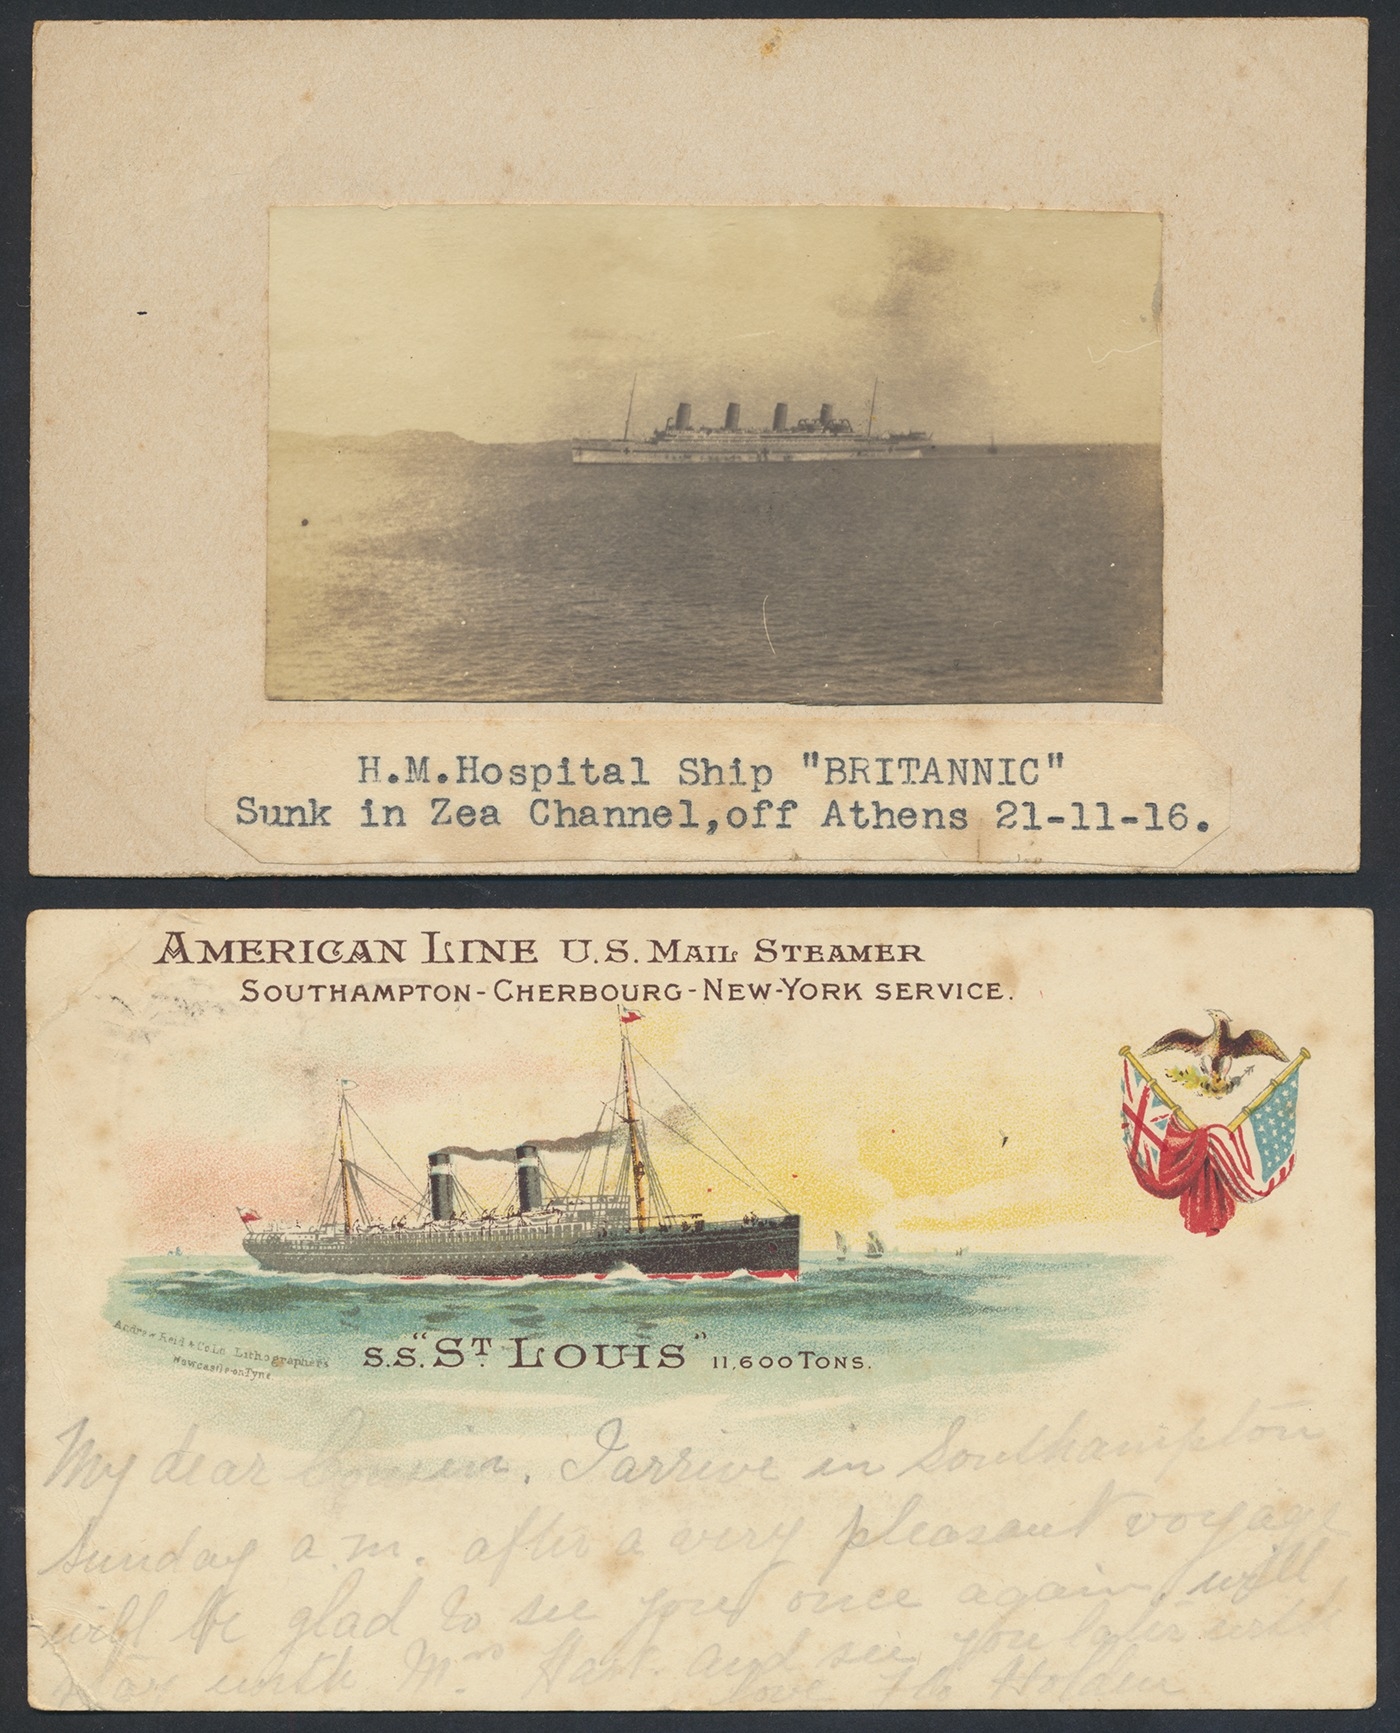 H.M.Hospital Ship "BRITANNIC"
Sunk in Zea Channel,off Athens 21-11-16.
AMERICAN LINE U.S. MAIL STEAMER
SOUTHAMPTON-CHERBOURG-NEW-YORK SERVICE.
Andrew Reid & Co Ld Lithographers
Newcastle-on Tyne
S.S. "ST LOUIS" 11,600 TONS.
My dear Cousin. I arrive in Southampton
Sunday a.m. after a very pleasant voyage
will be glad to see you once again, will
stay with Mrs Hart. and see you later with
love Flo Holden